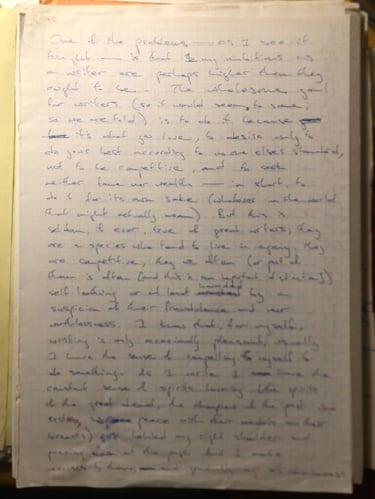 One of the problems — as I see it
tonight — is that my ambitions as
a writer are perhaps higher than they
ought to be. The wholesome goal
for writers (so it would seem, to some;
so we are told) is to do it because
it's what you love, to desire only to
do your best according to no one else's standard,
not to be competitive, and to seek
neither fame nor wealth — in short, to
do it for its own sake (whatever in the world
that might actually mean). But this is
seldom, if ever, true of great writers; they
are a species who tend to live in agony, they
are competitive, they are often (or part of
them is often [and this is an important distinction])
self loathing or at least hounded by a
suspicion of their fraudulence and
worthlessness. I know that, for myself,
writing is only occasionally pleasant, usually
I have the sense of compelling myself to
do something. As I write I have the
constant sense of spirits hovering (the spirits
of the great dead, the champions of the past
peace with their medals on their
breasts) behind my right shoulder and
at the page. And I make
to them, and